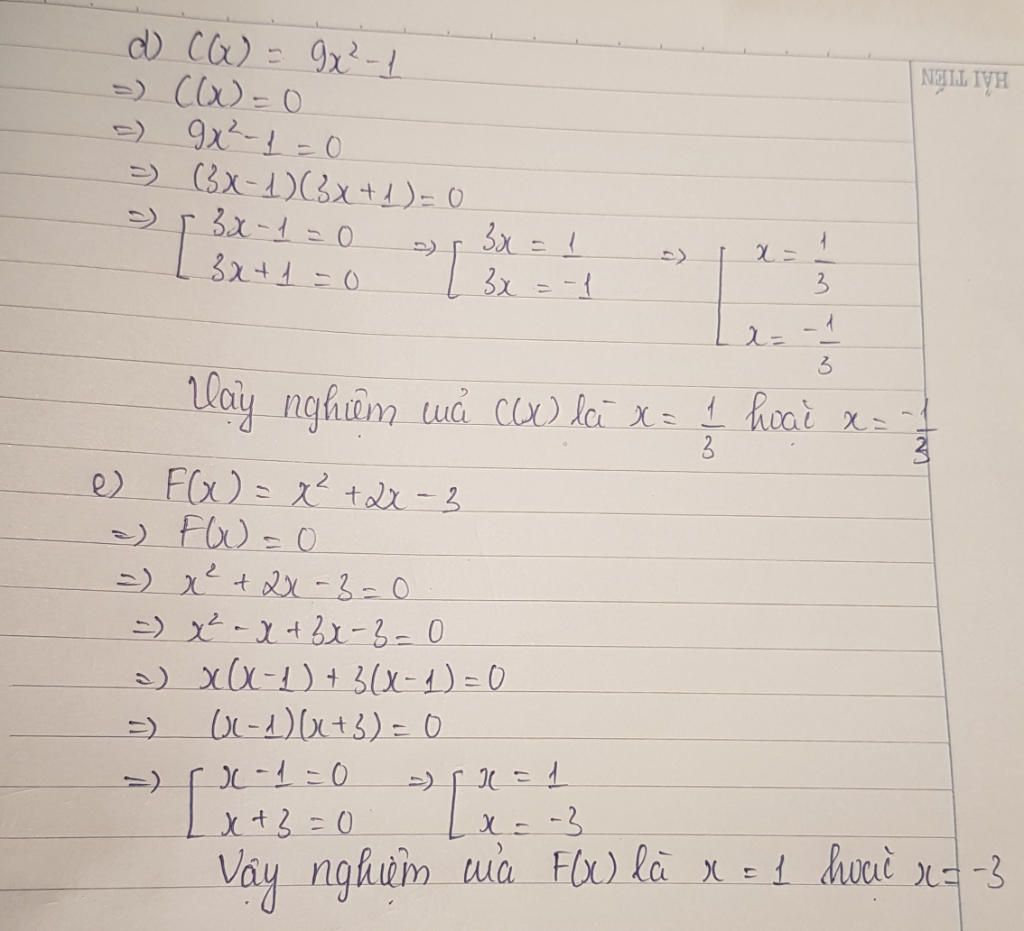 d) C(x) = 9x² - 1
HẢI TIẾN
=> C(x) = 0
=> 9x² - 1 = 0
=> (3x - 1)(3x + 1) = 0
=> [ 3x - 1 = 0 => [ 3x = 1 => [ x = 1/3
3x + 1 = 0 3x = -1 x = -1/3
Vậy nghiệm của C(x) là x = 1/3 hoặc x = -1/3
e) F(x) = x² + 2x - 3
=> F(x) = 0
=> x² + 2x - 3 = 0
=> x² - x + 3x - 3 = 0
=> x(x - 1) + 3(x - 1) = 0
=> (x - 1)(x + 3) = 0
=> [ x - 1 = 0 => [ x = 1
x + 3 = 0 x = -3
Vậy nghiệm của F(x) là x = 1 hoặc x = -3